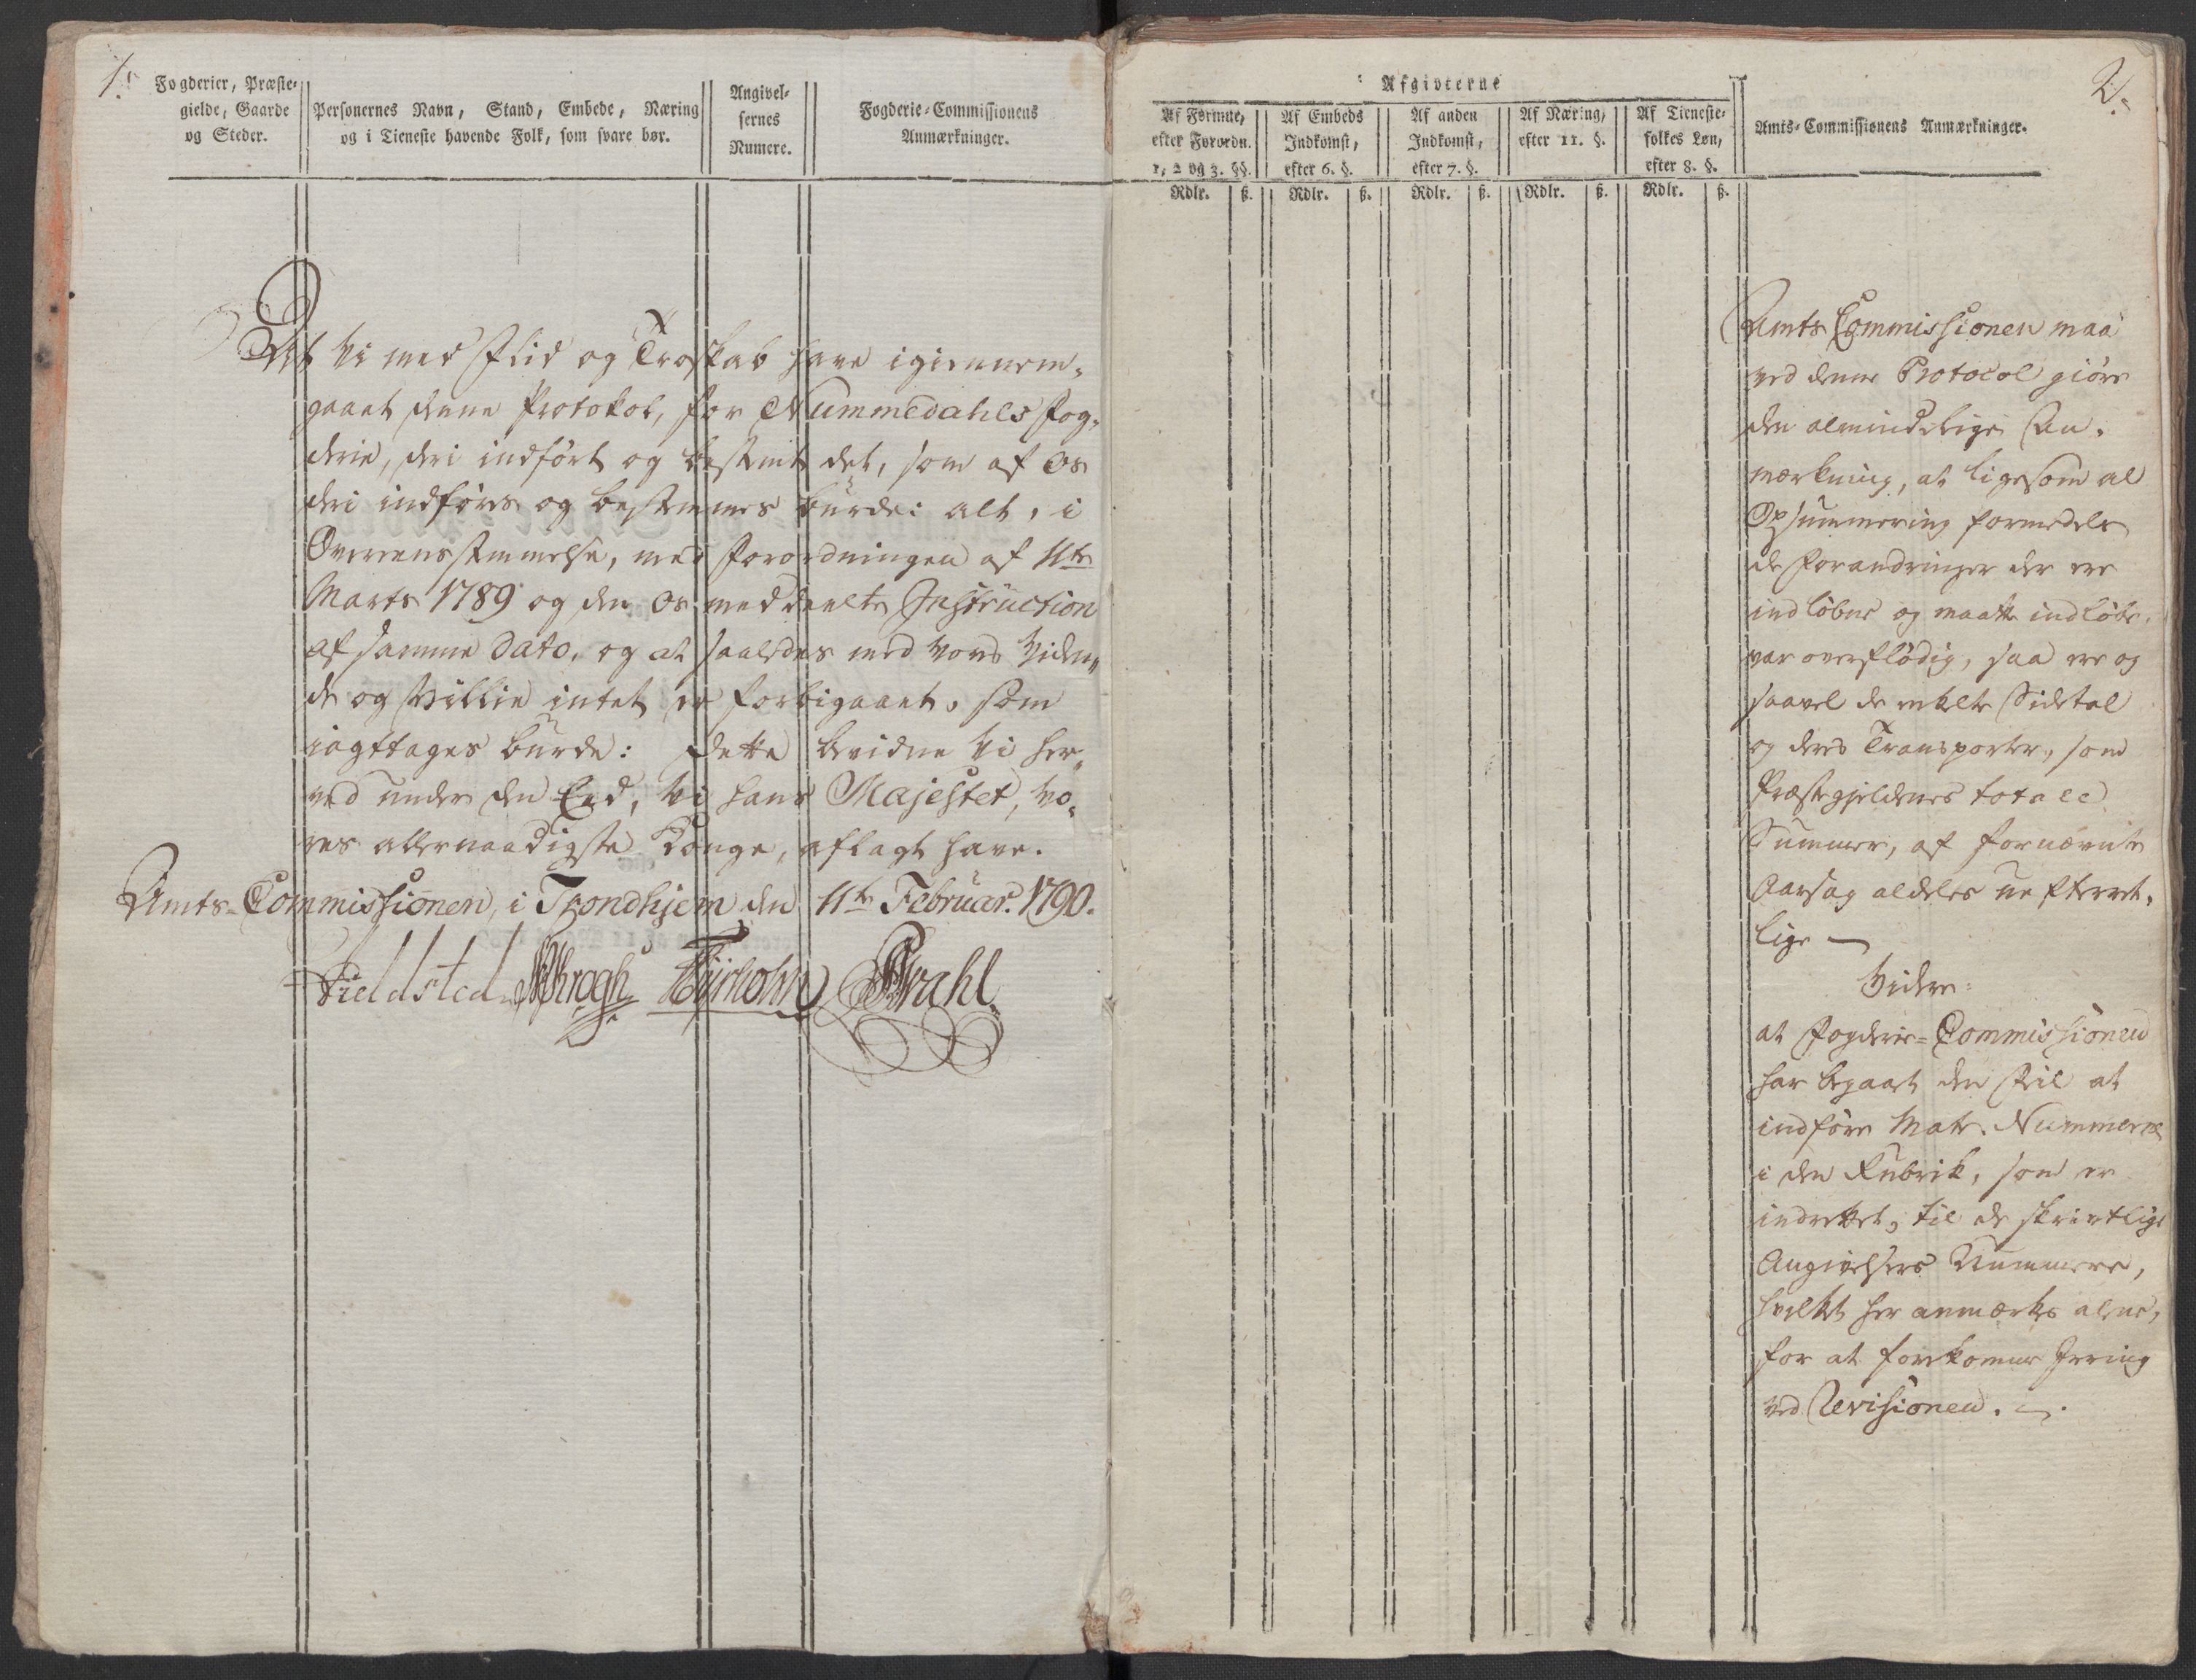 1.
Fogderier, Præste-
gielde, Gaarde
og Steder.
Personernes Navn, Stand, Embede, Næring
og i Tieneste havende Folk, som svare bør.
Angivel-
sernes
Numere.
Fogderie-Commissionens
Anmærkninger.
At Vi med Flid og Troskab have igiennem-
gaaet denne Protokol, for Nummedahls Fog-
derie, deri indført og bestemt det, som af Os
deri indføres og bestemmes burde: alt, i
Overensstemmelse, med Forordningen af 11te
Marts 1789 og den Os meddeelte Instruction
af samme Dato, og at saaledes med Vores Viden-
de og Villie intet er forbigaaet, som
iagttages burde: Dette bevidne Vi her-
ved under den Eed, Vi Hans Majestet, Vo-
res allernaadigste Konge, aflagt have.
Amts-Commissionen, i Trondhjem den 11te Februar. 1790.
Fieldsted Krogh Byrholm Wahl
2.
Afgivterne
Af Formue,
efter Forordn.
1, 2 og 3. §§.
Af Embeds
Indkomst,
efter 6. §.
Af anden
Indkomst,
efter 7. §.
Af Næring,
efter 11. §.
Af Tieneste-
folkes Løn,
efter 8. §.
Amts-Commissionens Anmærkninger.
Rdlr. ß. Rdlr. ß. Rdlr. ß. Rdlr. ß. Rdlr. ß.
Amts Commissionen maa
ved denne Protocol giøre
den almindelige An-
mærkning, at ligesom al
Opsummering formedelst
de Forandringer der ere
indløbne og maatte indløbe,
var overflødig, saa ere og
saavel de enkelte Sidetal
og deres Transporter, som
Præstegieldenes totale
Summer, af fornævnte
Aarsag aldeles uefterret-
lige —
Videre:
at Fogderie-Commissionen
har begaaet den Feil at
indføre Matr. Nummerne
i den Rubrik, som er
indrettet, til de skrivtlige
Angivelsers Nummere,
hvilket her anmærkes alene,
for at forekomme Irring
ved Revisionen. —.